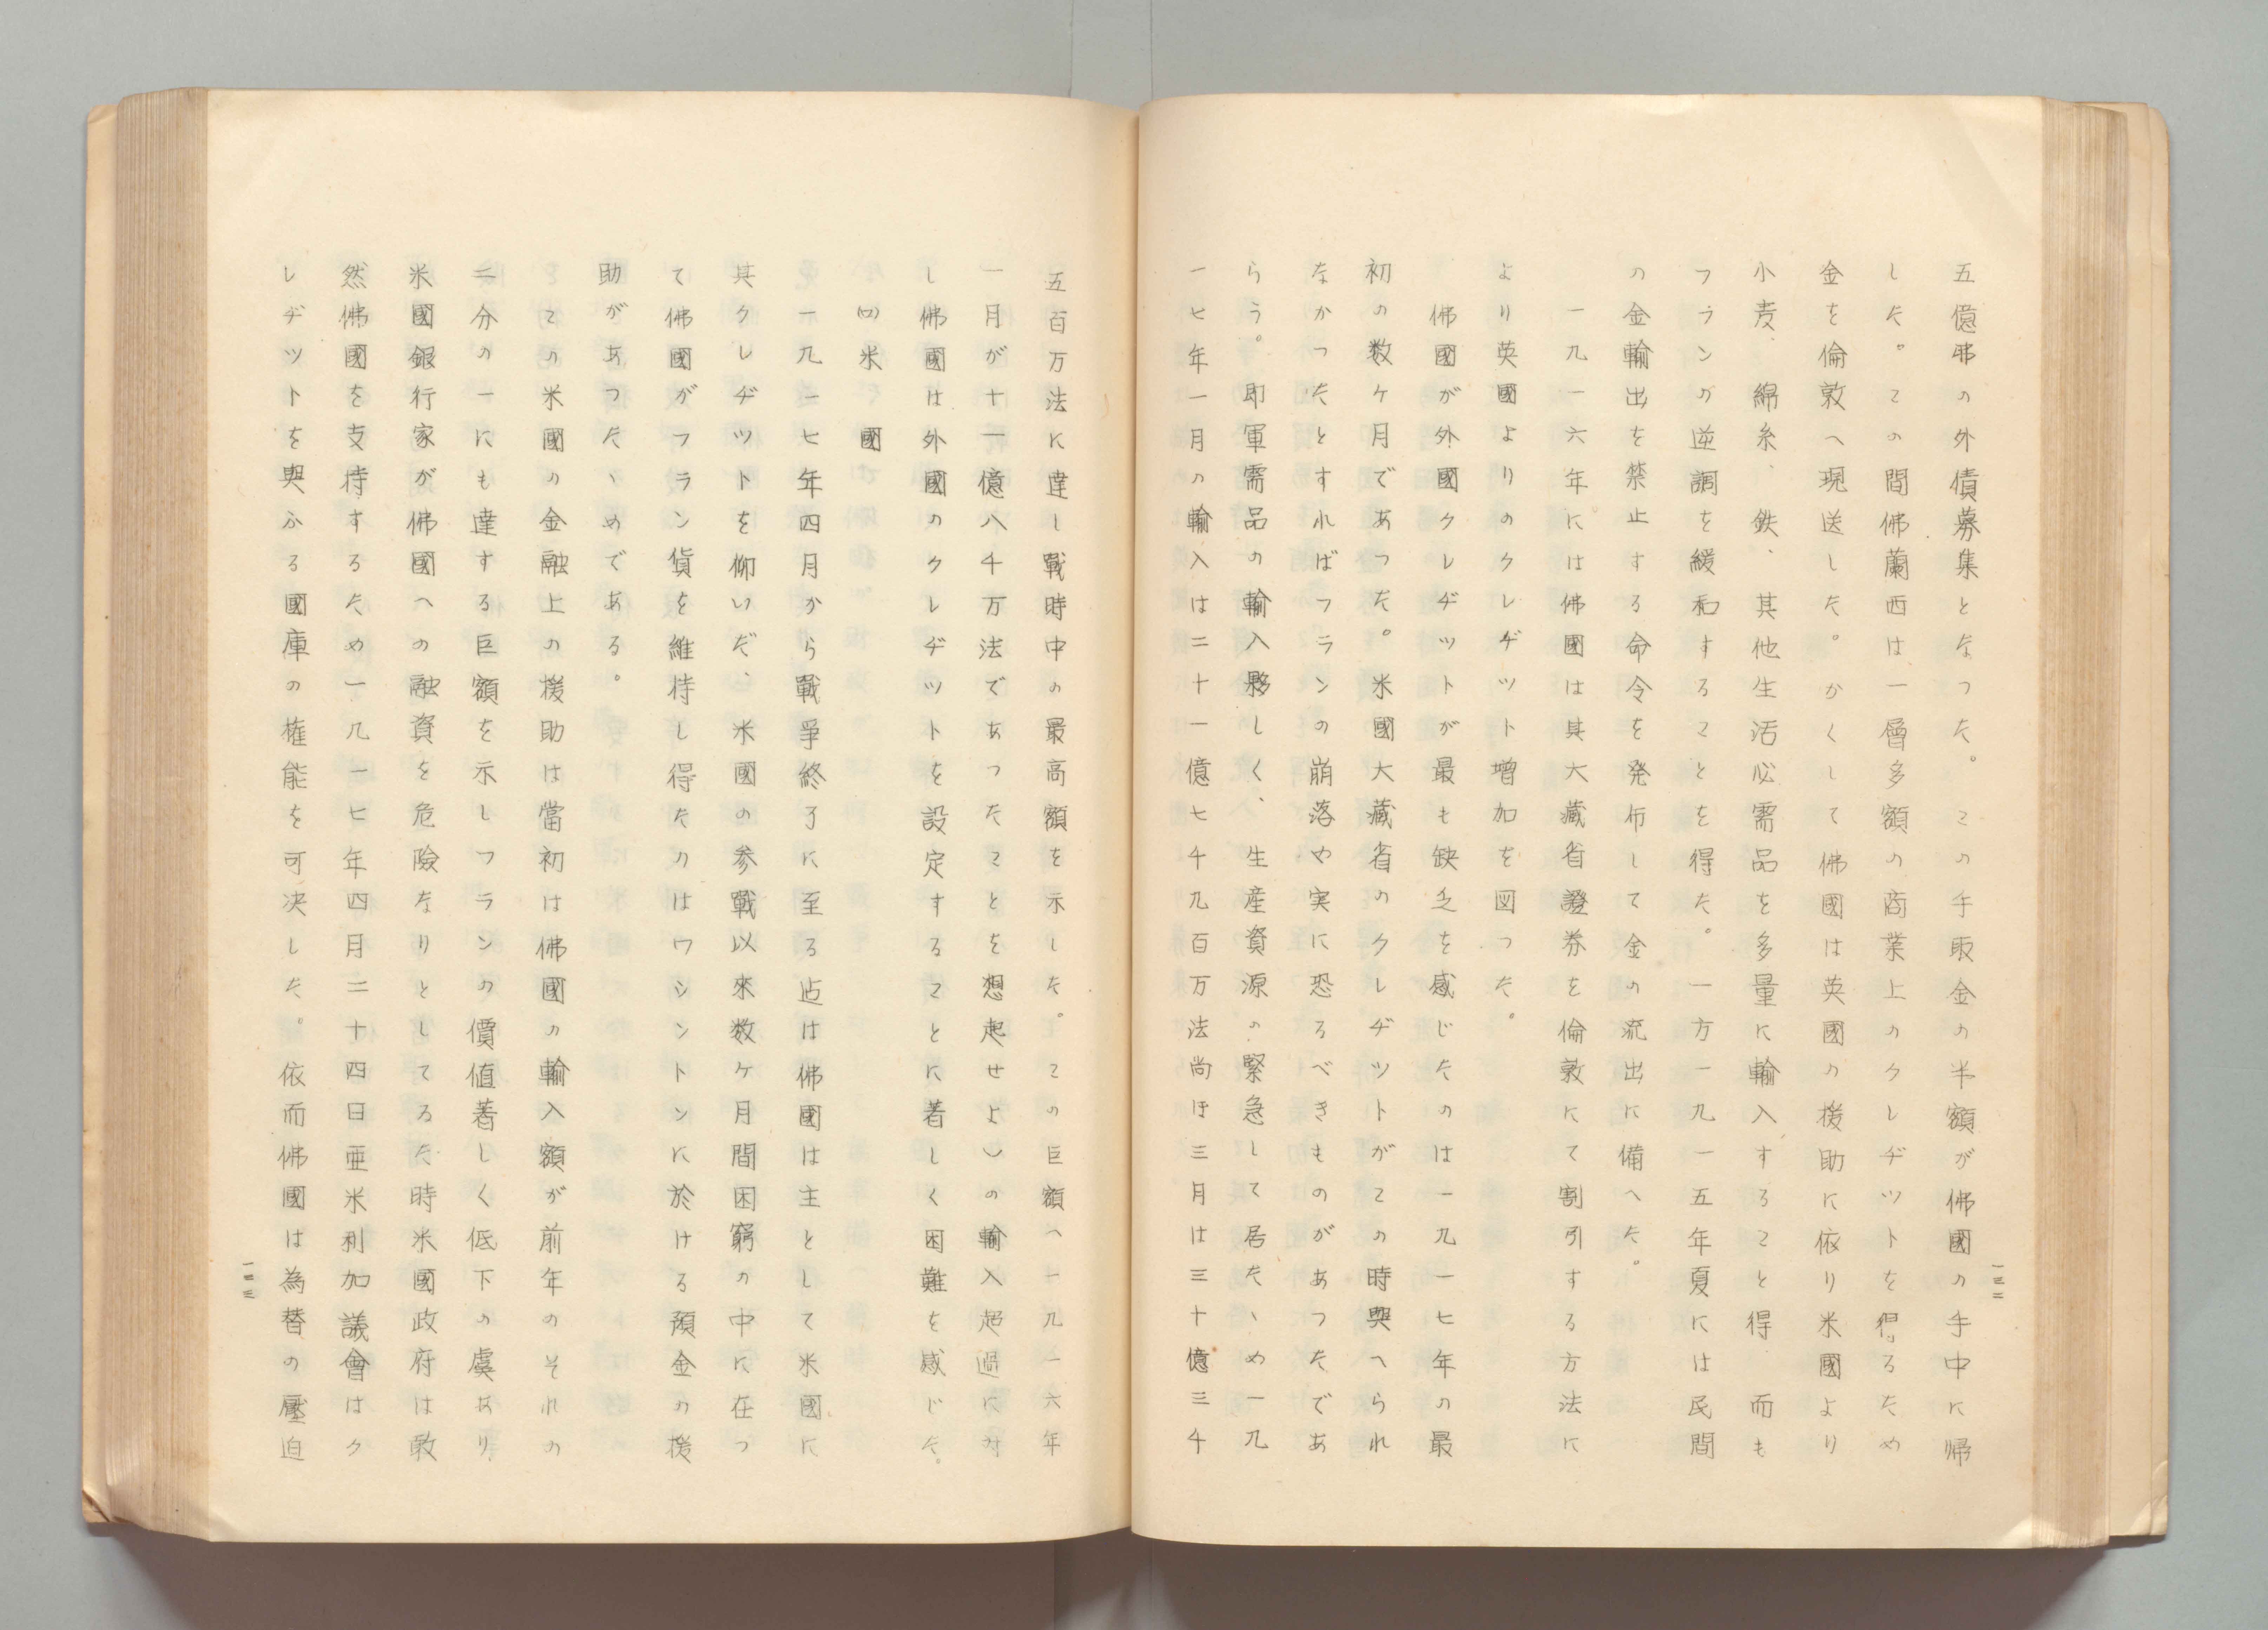 五億弗の外債募集となつた。この手取金の半額が佛國の手中に帰
した。この間佛蘭西は一層多額の商業上のクレヂツトを得るため
金を倫敦へ現送した。かくして佛國は英國の援助に依り米國より
小麦、綿糸、鉄、其他生活必需品を多量に輸入すること得而も
フランの逆調を緩和することを得た。一方一九一五年夏には民間
の金輸出を禁止する命令を発布して金の流出に備へた。
一九一六年には佛國は其大藏省證券を倫敦にて割引する方法に
より英國よりのクレヂツト増加を図つた。
佛國が外國クレヂツトが最も缺乏を感じたのは一九一七年の最
初の数ヶ月であつた。米國大藏省のクレヂツトがこの時與へられ
なかつたとすればフランの崩落や実に恐るべきものがあつたであ
らう。即軍需品の輸入夥しく、生産資源の緊急して居たゝめ一九
一七年一月の輸入は二十一億七千九百万法尚ほ三月は三十億三千
一三二
五百万法に達し戰時中の最高額を示した。この巨額へ一九一六年
一月が十一億八千万法であつたことを想起せよ)の輸入超過に対
し佛國は外國のクレヂツトを設定することに著しく困難を感じた。
(四)米國
一九一七年四月から戰爭終了に至る迠は佛國は主として米國に
其クレヂツトを仰いだ、米國の参戰以來数ヶ月間困窮の中に在つ
て佛國がフラン貨を維持し得たのはワシントンに於ける預金の援
助があつたゝめである。
この米國の金融上の援助は當初は佛國の輸入額が前年のそれの
二分の一にも達する巨額を示しフランの價値著しく低下の虞あり
米國銀行家が佛國への融資を危險なりとしてゐた時米國政府は敢
然佛國を支持するため一九一七年四月二十四日亜米利加議會はク
レヂツトを與ふる國庫の権能を可决した。依而佛國は為替の壓迫
一三三